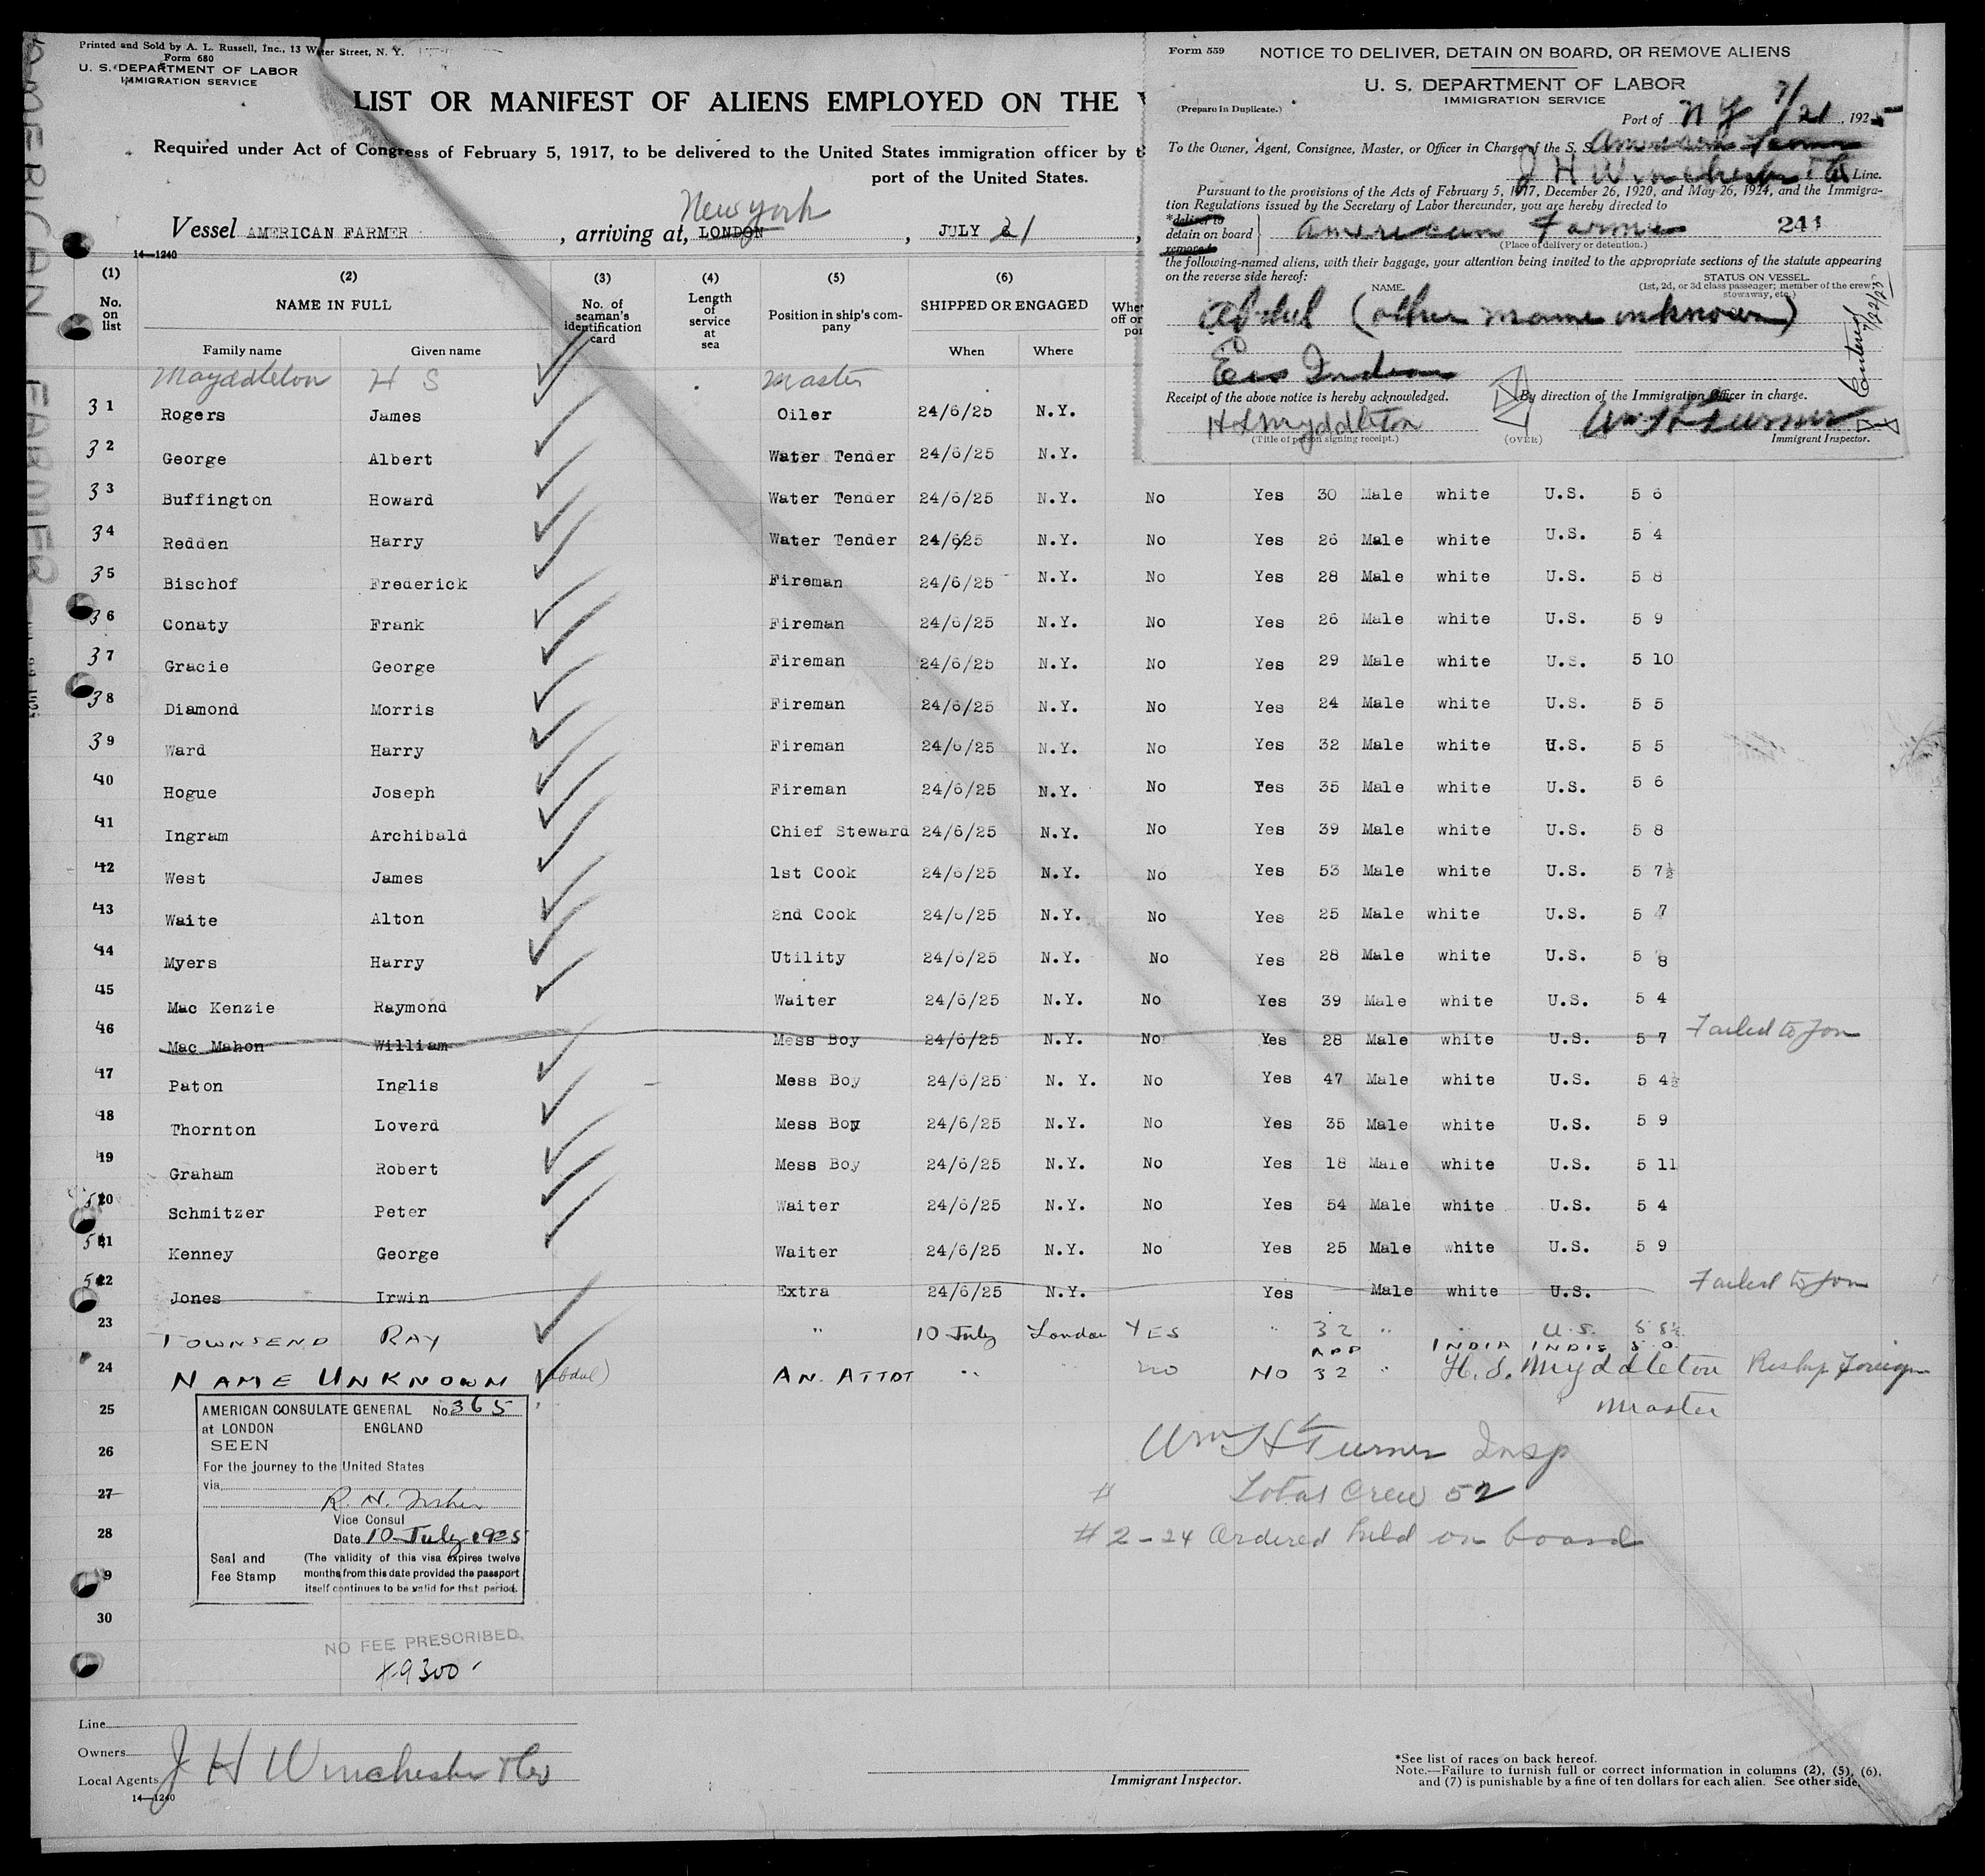 Printed and Sold by A. L. Russell, Inc., 13 Water Street, N. Y.
Form 680
U. S. DEPARTMENT OF LABOR
IMMIGRATION SERVICE
LIST OR MANIFEST OF ALIENS EMPLOYED ON THE
Required under Act of Congress of February 5, 1917, to be delivered to the United States immigration officer by
port of the United States.
New York
Vessel AMERICAN FARMER, arriving at, LONDON, JULY 21,
14—1240
Form 559
NOTICE TO DELIVER, DETAIN ON BOARD, OR REMOVE ALIENS
U. S. DEPARTMENT OF LABOR
IMMIGRATION SERVICE
(Prepare in Duplicate.)
Port of N Y 7/21, 1925
To the Owner, Agent, Consignee, Master, or Officer in Charge of the S. S. American Farmer
J H Winchester & Co Line.
Pursuant to the provisions of the Acts of February 5, 1917, December 26, 1920, and May 26, 1924, and the Immigra-
tion Regulations issued by the Secretary of Labor thereunder, you are hereby directed to
*deliver to
detain on board
remove to
American Farmer 241
(Place of delivery or detention.)
the following-named aliens, with their baggage, your attention being invited to the appropriate sections of the statute appearing
on the reverse side hereof:
NAME.
STATUS ON VESSEL.
(1st, 2d, or 3d class passenger; member of the crew;
stowaway, etc.)
Abdul (other name unknown)
Indian
Entered 7/22/25
Receipt of the above notice is hereby acknowledged.
By direction of the Immigration Officer in charge.
H S Myddleton
Wm H Turner
(Title of person signing receipt.)
(OVER)
Immigrant Inspector.
(1) (2) (3) (4) (5) (6)
No. on list
NAME IN FULL
Family name Given name
No. of seaman's identification card
Length of service at sea
Position in ship's company
SHIPPED OR ENGAGED
When Where
Mayddleton H S Master
31 Rogers James Oiler 24/6/25 N.Y.
32 George Albert Water Tender 24/6/25 N.Y.
33 Buffington Howard Water Tender 24/6/25 N.Y. No Yes 30 Male white U.S. 5 6
34 Redden Harry Water Tender 24/6/25 N.Y. No Yes 26 Male white U.S. 5 4
35 Bischof Frederick Fireman 24/6/25 N.Y. No Yes 28 Male white U.S. 5 8
36 Conaty Frank Fireman 24/6/25 N.Y. No Yes 26 Male white U.S. 5 9
37 Gracie George Fireman 24/6/25 N.Y. No Yes 29 Male white U.S. 5 10
38 Diamond Morris Fireman 24/6/25 N.Y. No Yes 24 Male white U.S. 5 5
39 Ward Harry Fireman 24/6/25 N.Y. No Yes 32 Male white U.S. 5 5
40 Hogue Joseph Fireman 24/6/25 N.Y. No Yes 35 Male white U.S. 5 6
41 Ingram Archibald Chief Steward 24/6/25 N.Y. No Yes 39 Male white U.S. 5 8
42 West James 1st Cook 24/6/25 N.Y. No Yes 53 Male white U.S. 5 7½
43 Waite Alton 2nd Cook 24/6/25 N.Y. No Yes 25 Male white U.S. 5 7
44 Myers Harry Utility 24/6/25 N.Y. No Yes 28 Male white U.S. 5 8
45 Mac Kenzie Raymond Waiter 24/6/25 N.Y. No Yes 39 Male white U.S. 5 4
46 Mac Mahon William Mess Boy 24/6/25 N.Y. No Yes 28 Male white U.S. 5 7 Failed to Join
47 Paton Inglis Mess Boy 24/6/25 N. Y. No Yes 47 Male white U.S. 5 4½
48 Thornton Loverd Mess Boy 24/6/25 N.Y. No Yes 35 Male white U.S. 5 9
49 Graham Robert Mess Boy 24/6/25 N.Y. No Yes 18 Male white U.S. 5 11
50 Schmitzer Peter Waiter 24/6/25 N.Y. No Yes 54 Male white U.S. 5 4
51 Kenney George Waiter 24/6/25 N.Y. No Yes 25 Male white U.S. 5 9
52 Jones Irwin Extra 24/6/25 N.Y. Yes Male white U.S. Failed to Join
23 TOWNSEND RAY " 10 July London YES " 32 " " U.S. 5 8½
24 NAME UNKNOWN (Abdul) AN. ATTDT " " NO NO APP 32 " INDIA INDIE 5.0.
H. S. Myddleton
Master
25
26
27
28
29
30
AMERICAN CONSULATE GENERAL No. 365
at LONDON ENGLAND
SEEN
For the journey to the United States
via
R. H. Fisher
Vice Consul
Date 10 July 1925
Seal and Fee Stamp
(The validity of this visa expires twelve
months from this date provided the passport
itself continues to be valid for that period.
NO FEE PRESCRIBED.
Wm H Turner Insp
# Total Crew 52
# 2 - 24 Ordered held on board
Line
Owners
Local Agents
J H Winchester & Co
14—1240
Immigrant Inspector.
*See list of races on back hereof.
Note.—Failure to furnish full or correct information in columns (2), (5), (6),
and (7) is punishable by a fine of ten dollars for each alien. See other side.
AMERICAN FARMER